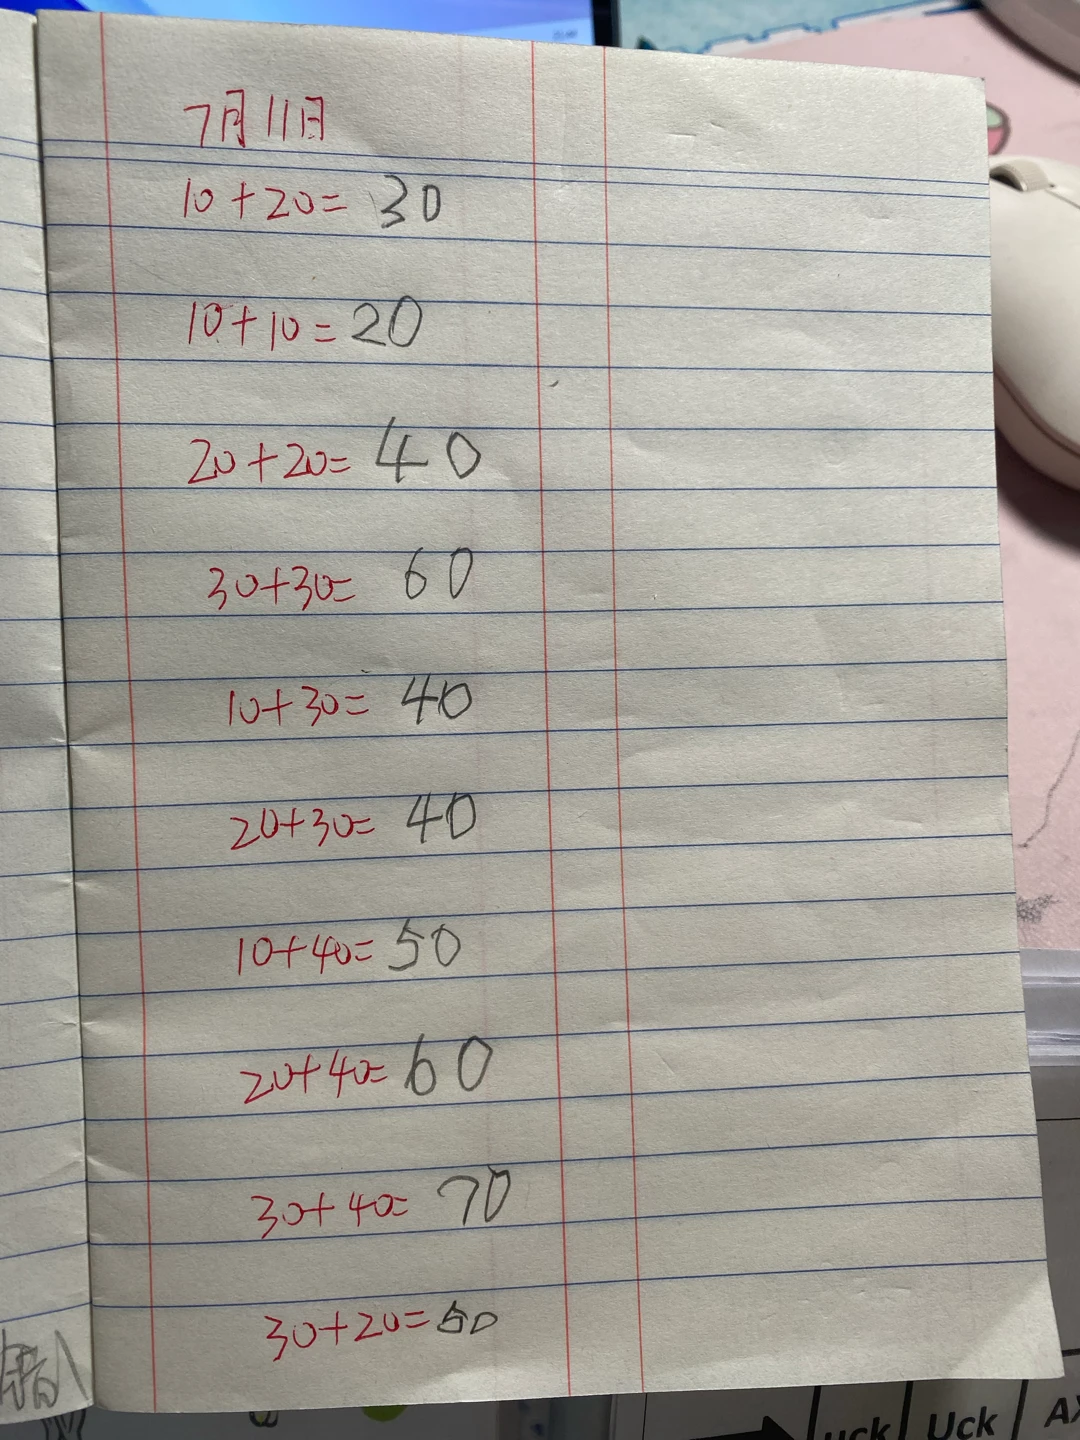 7月11日
10+20=30
10+10=20
20+20=40
30+30=60
10+30=40
20+30=40
10+40=50
20+40=60
30+40=70
30+20=50
uck
Uck